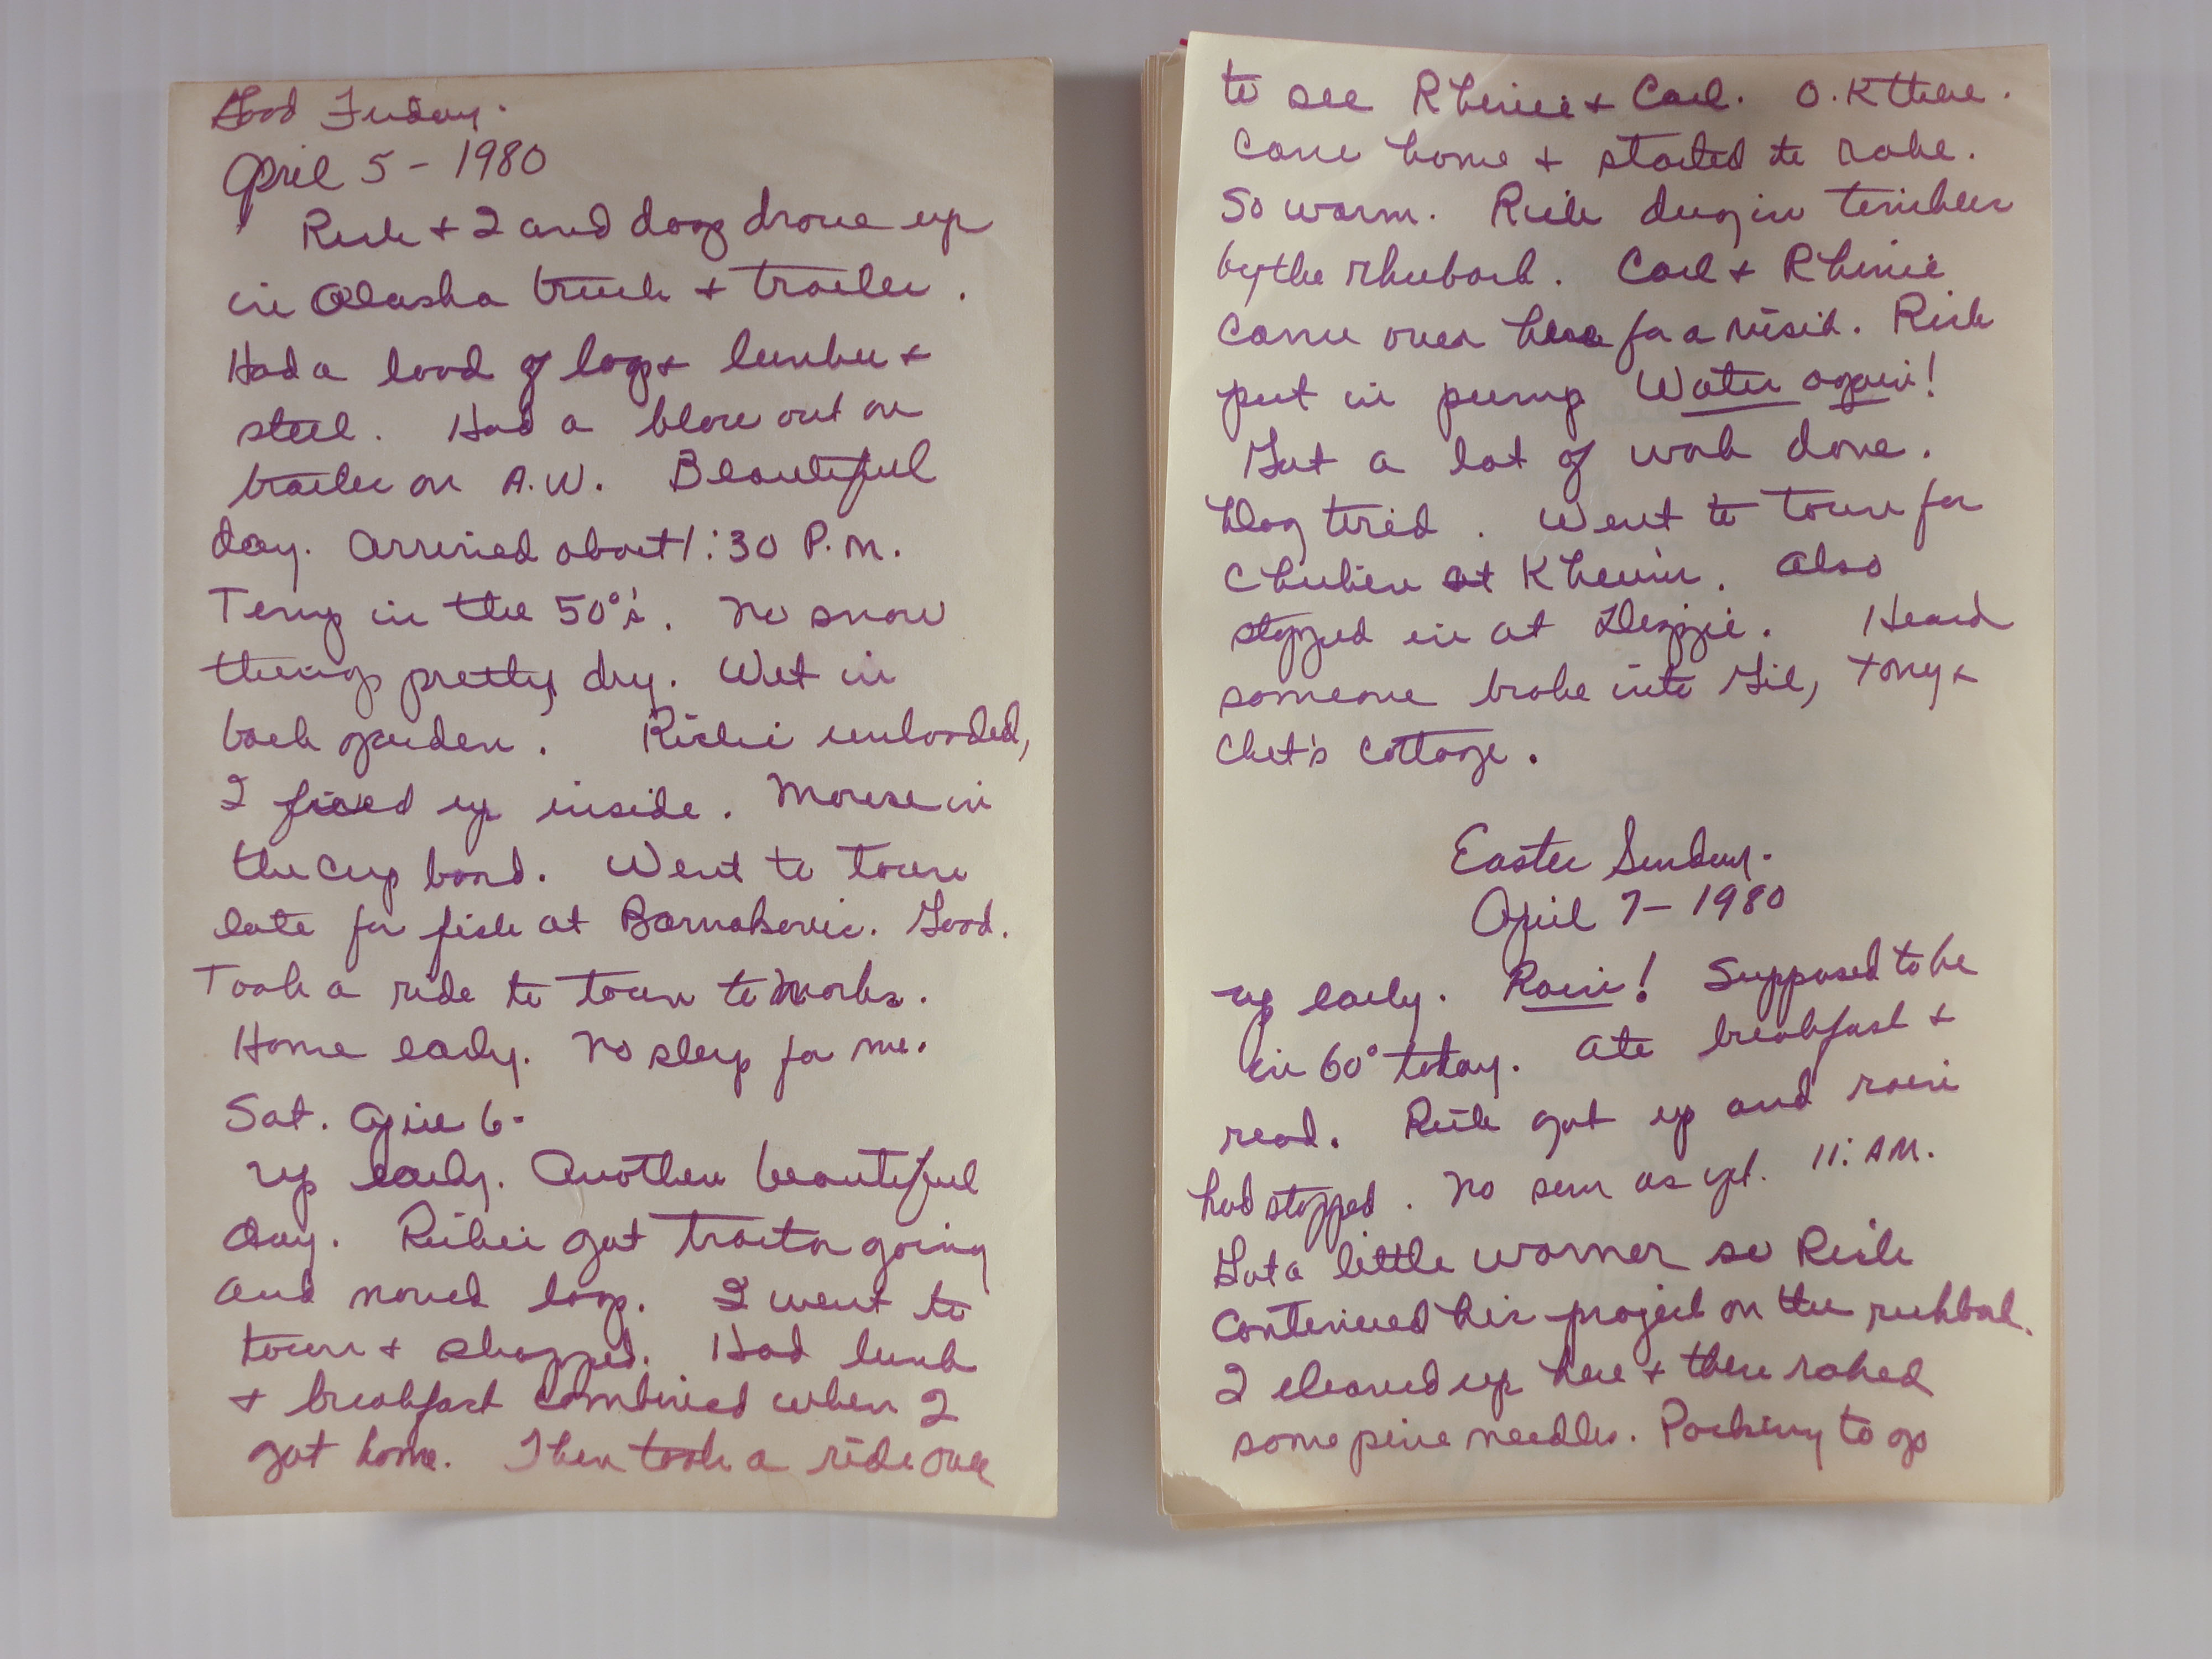 Good Friday.
April 5 - 1980
Rich + I and dog drove up
in Alaska truck + trailer.
Had a load of logs + lumber +
steel. Had a blow out on
trailer on A.W. Beautiful
day. Arrived about 1:30 P.M.
Temp in the 50°'s. No snow
things pretty dry. Wet in
back garden. Richie unloaded,
I fixed up inside. Mouse in
the cup board. Went to town
late for fish at . Good.
Took a ride to town to .
Home early. No sleep for me.
Sat. April 6 -
up early. Another beautiful
day. Richie got tractor going
and moved logs. I went to
town + shopped. Had lunch
+ breakfast combined when I
got home. Then took a ride over
to see Rhinie + Carl. O.K there.
Came home + started to rake.
So warm. Rich dug in timbers
by the rhubarb. Carl + Rhinie
came over here for a visit. Rich
put in pump Water again!
Got a lot of work done.
Dog tired. Went to town for
chicken at . Also
stopped in at . Heard
someone broke into Gil, Tony +
Chet's cottage.
Easter Sunday.
April 7 - 1980
up early. Rain! Supposed to be
in 60° today. Ate breakfast +
read. Rich got up and rain
had stopped. No sun as yet. 11: AM.
Got a little warmer so Rich
continued his project on the ruhbarb.
I cleaned up here + there raked
some pine needles. Packing to go